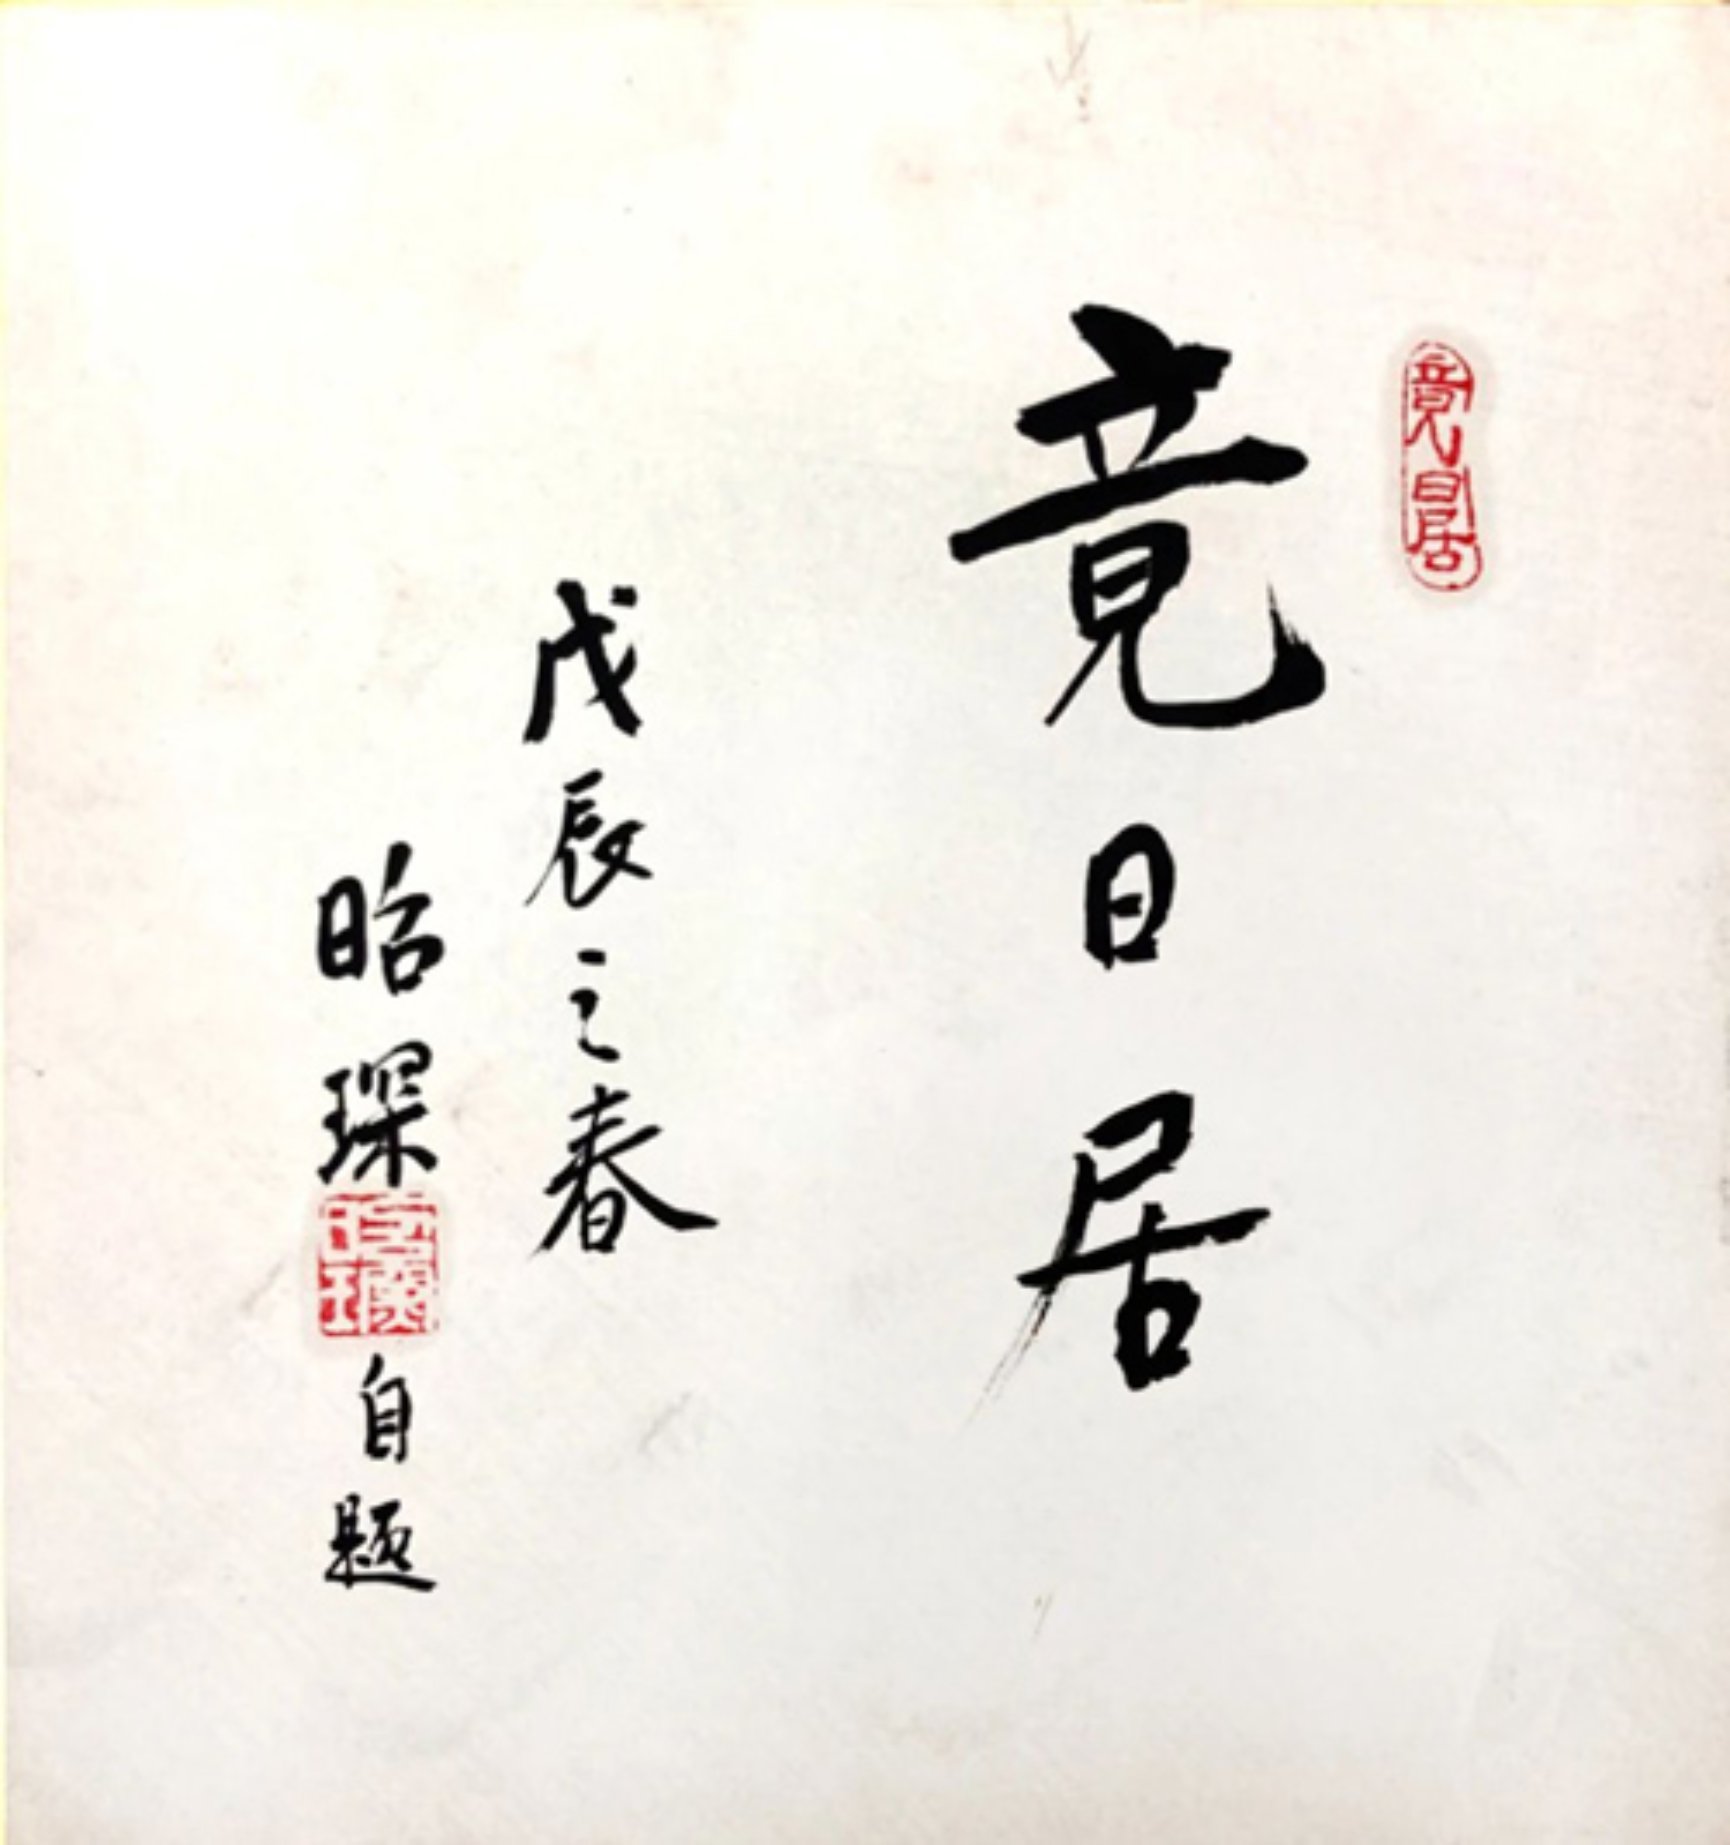 竟日居
竟日居
戊辰之春
昭琛
昭琛
自题